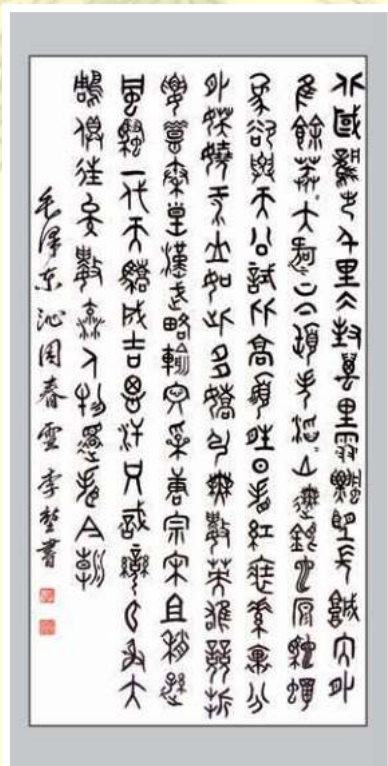 北國風光千里冰封萬里雪飄望長城內外
惟餘莽莽大河上下頓失滔滔山舞銀蛇原馳蠟
象欲與天公試比高須晴日看紅裝素裹分
外妖嬈江山如此多嬌引無數英雄競折
腰惜秦皇漢武略輸文采唐宗宋祖稍遜
風騷一代天驕成吉思汗只識彎弓射大
鵰俱往矣數風流人物還看今朝
毛澤东沁园春雪 李書